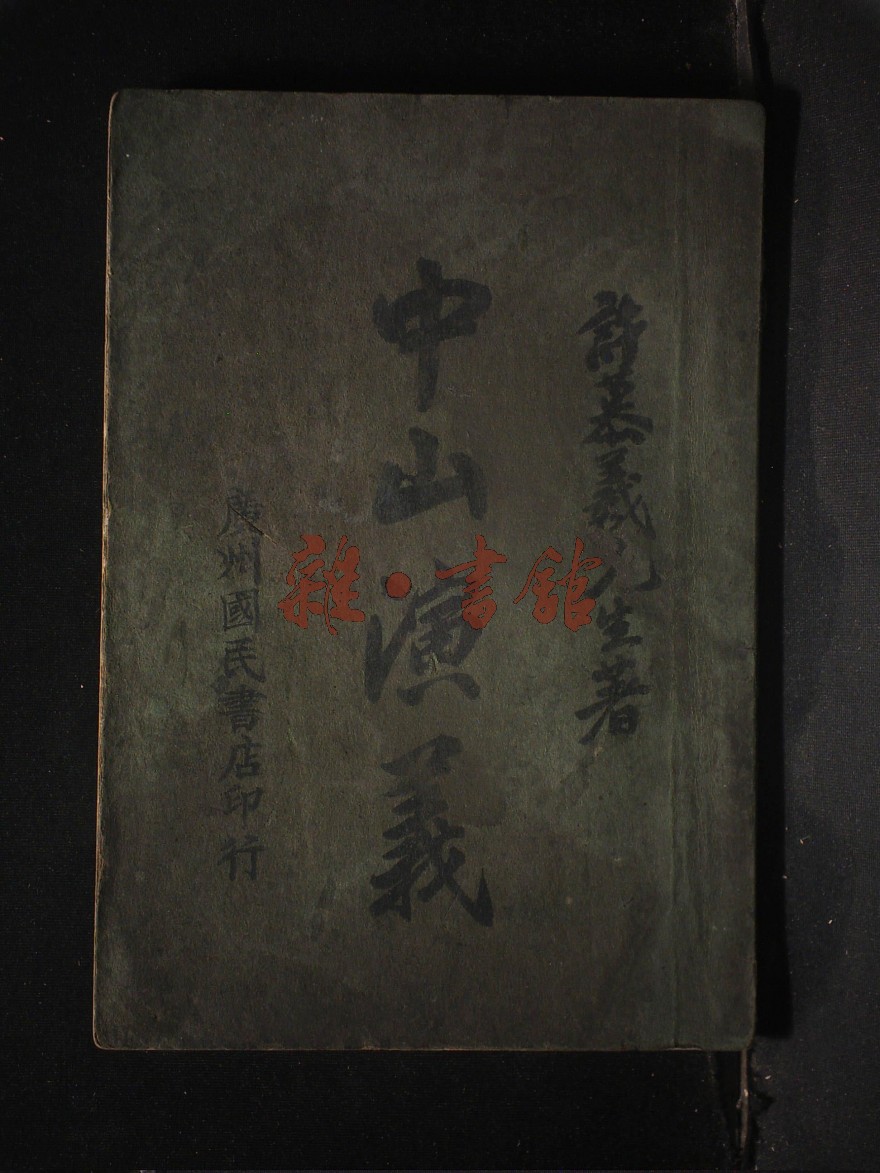 許慕義先生著
中山演義
廣州國民書店印行
雜·書館